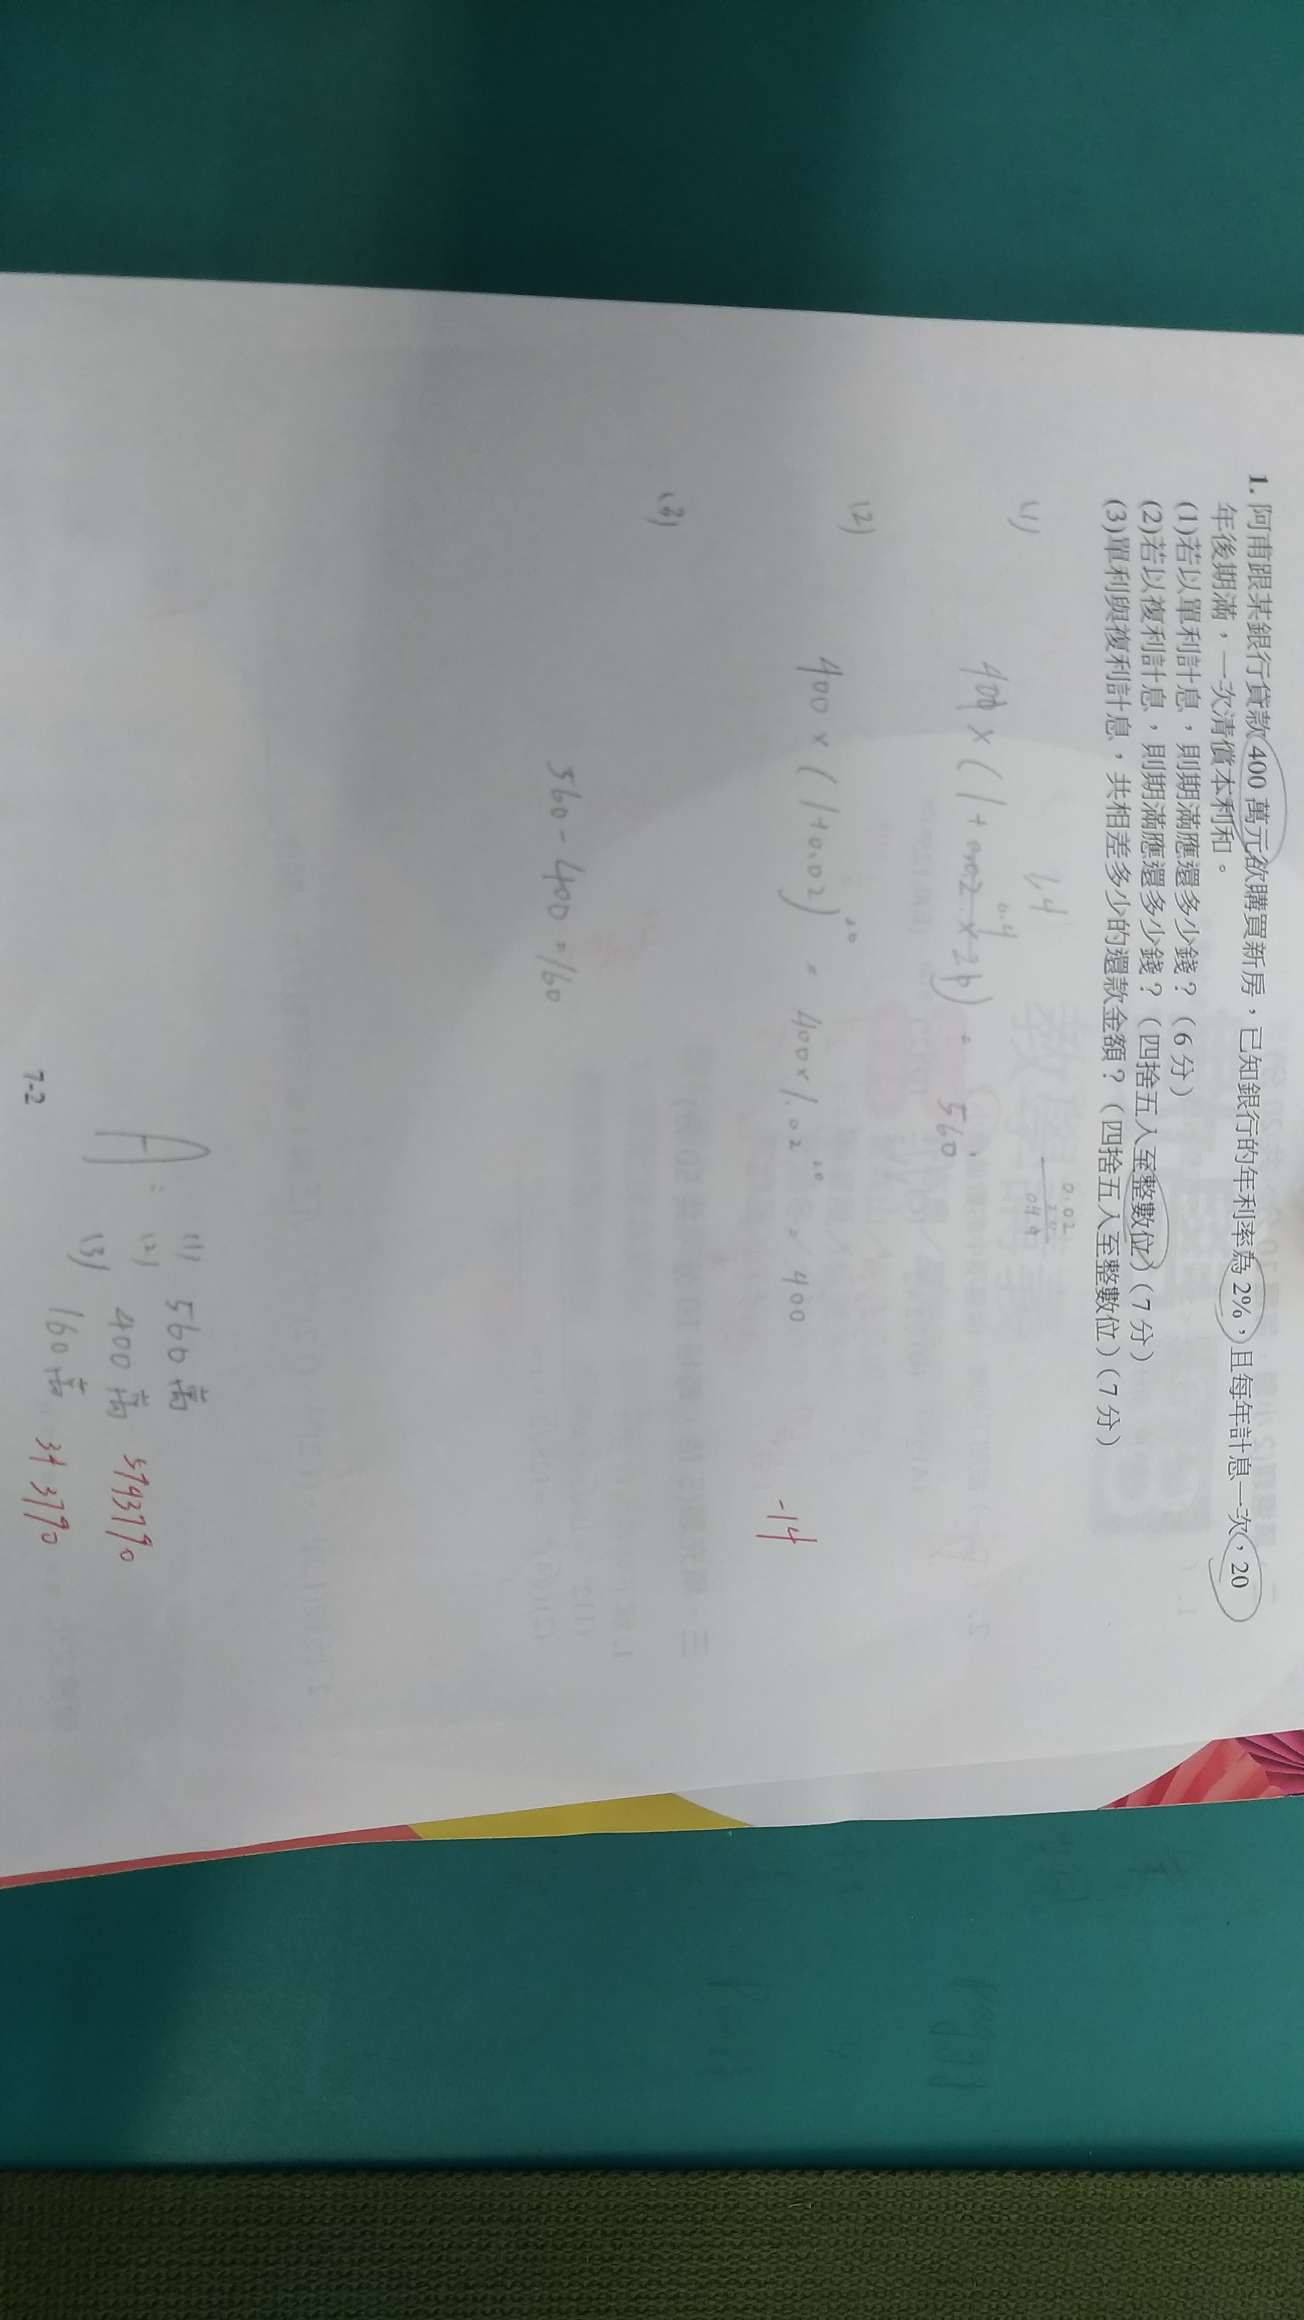 1. 阿甫跟某銀行貸款 400 萬元欲購買新房，已知銀行的年利率為 2%，且每年計息一次，20
年後期滿，一次清償本利和。
(1)若以單利計息，則期滿應還多少錢？（6 分）
(2)若以複利計息，則期滿應還多少錢？（四捨五入至整數位）（7 分）
(3)單利與複利計息，共相差多少的還款金額？（四捨五入至整數位）（7 分）
(1)
1.4
0.4
0.02
400 × (1+0.02×20) = 560
(2)
400 × (1+0.02)²⁰ = 400×1.02²⁰ = 400
-14
(3)
560 - 400 = 160
A: (1) 560萬
(2) 400萬 5943790
(3) 160萬 343790
7-2